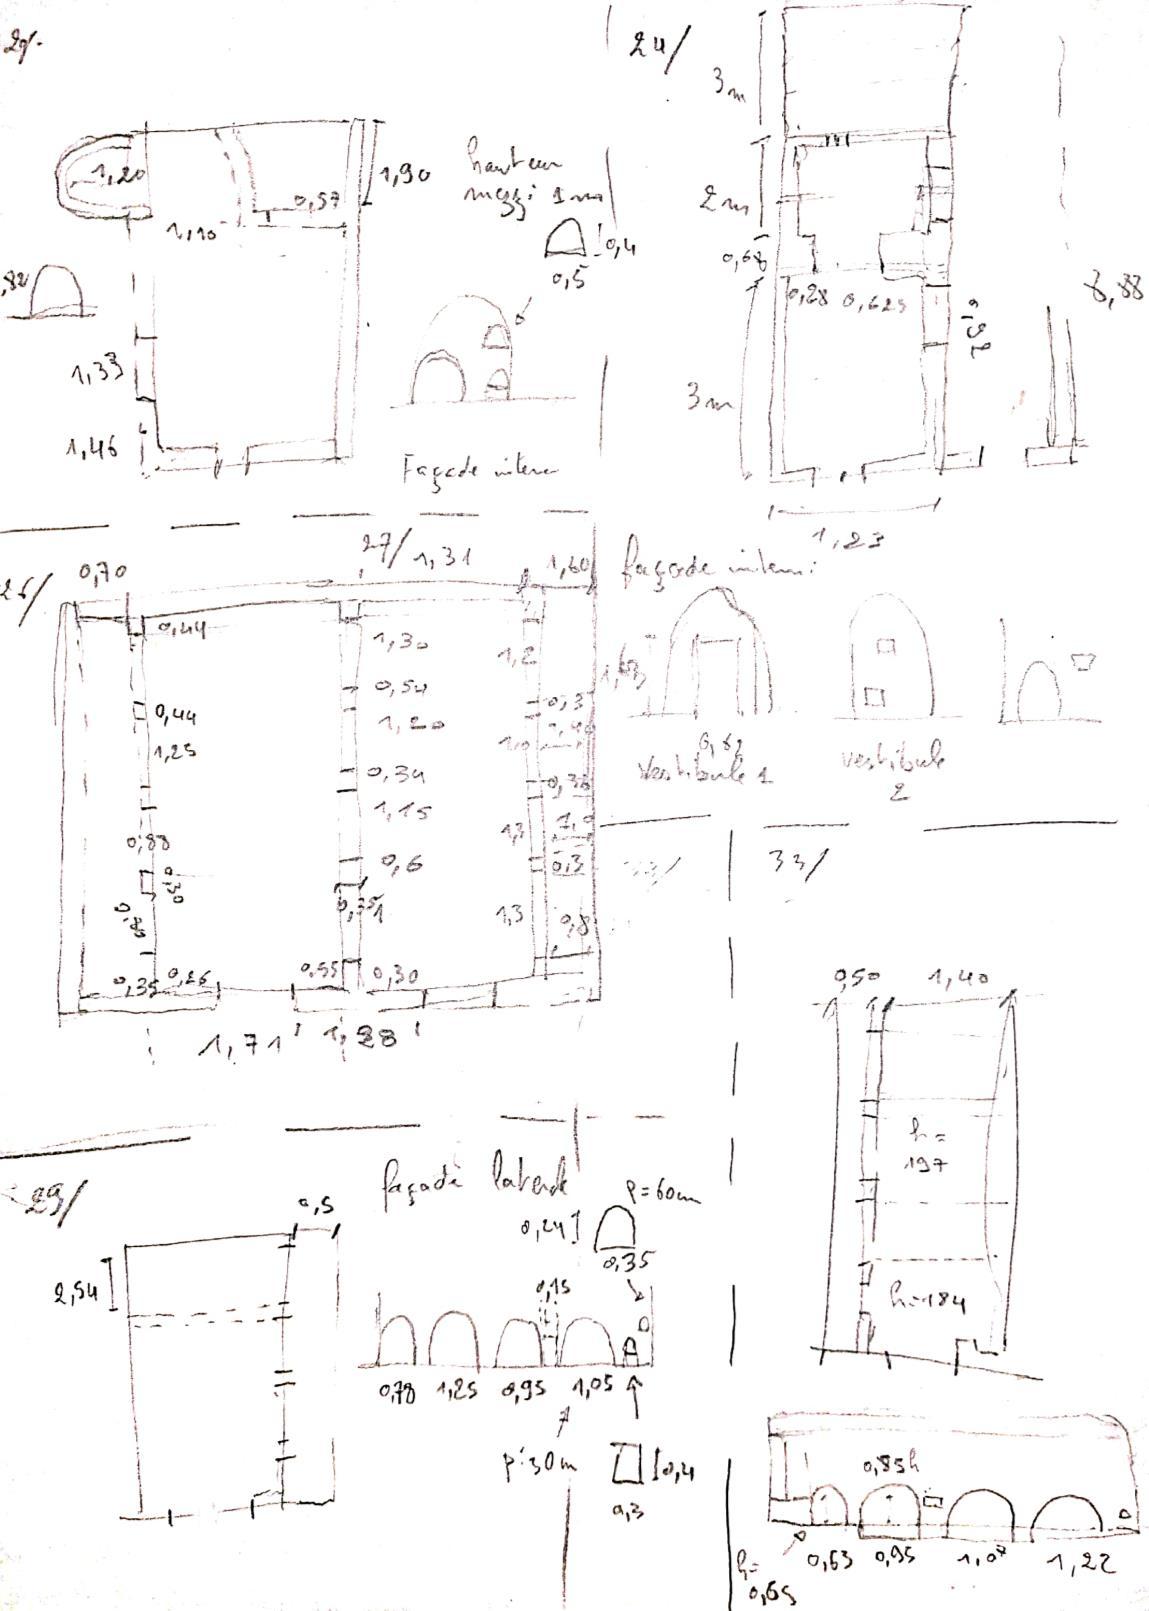 24/
3m
2m
0,68
0,28 0,625
3m
8,88
1,23
1,20
1,90
0,57
1,10
hauteur
1m
0,4
0,5
,82
1,33
1,46
Façade interne
26/
0,70
27/
1,31
1,60
0,44
0,44
1,25
0,88
0,30
0,35
0,26
1,30
0,54
1,20
0,34
1,15
0,6
0,55
0,30
1,2
1,3
1,3
0,3
0,8
1,71
1,28
façade intern:
1,63
0,82
vestibule 1
vestibule
2
33/
33/
0,50
1,40
h=
197
h=184
0,85h
0,63
0,95
1,07
1,22
h=
0,65
29/
0,5
2,54
façade laterale
p=60cm
0,24
0,35
0,15
0,78
1,25
0,95
1,05
p:30m
0,4
0,3